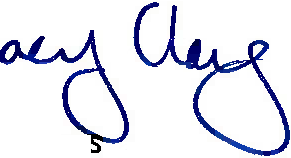 acy Clay
5